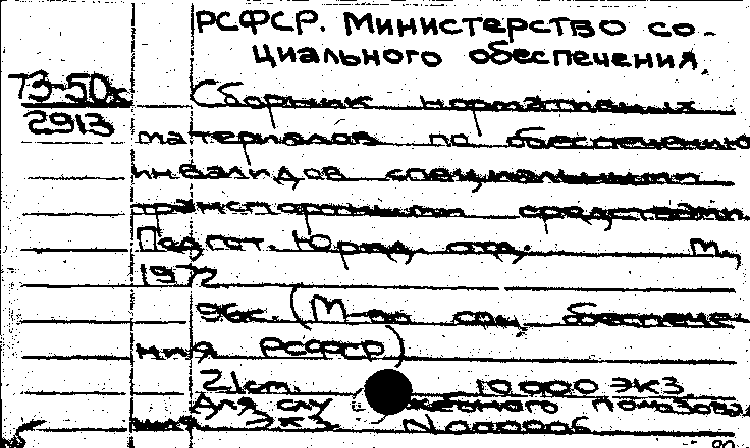 РСФСР. Министерство со-
циального обеспечения.
73-50х
2913
Сборник нормативных
материалов по обеспечению
инвалидов специальными
транспортными средствами.
Подгот. Юрид. отд. М.,
1972
96с. (М-во соц. обеспече-
ния РСФСР)
21см. 10.000 экз
Для служебного пользова-
ния Экз N000006